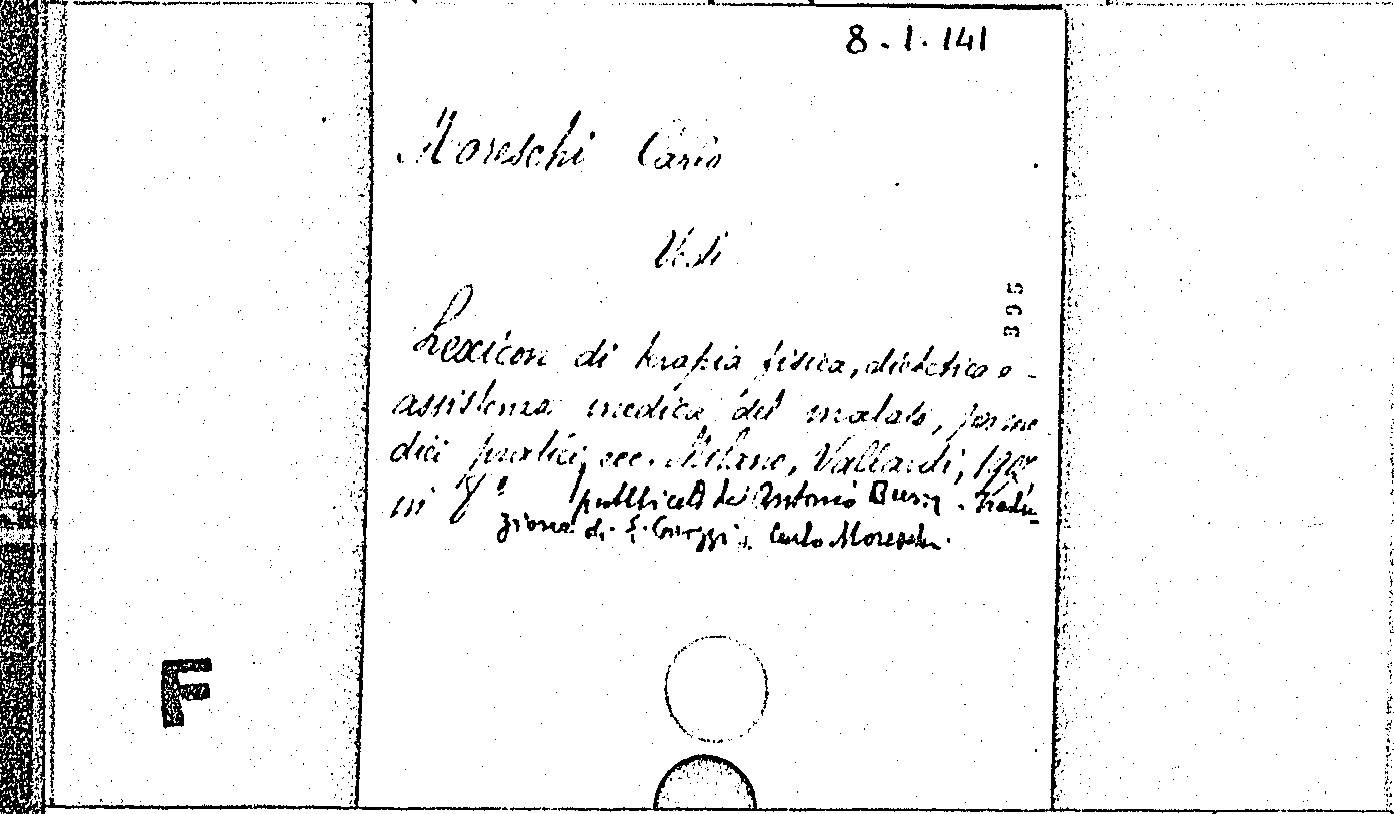 8.1.141
Moreschi Carlo
Vedi
395
Lexicon di terapia fisica, dietetica e
assistenza medica del malato, per me
dici pratici, ecc. Milano, Vallardi,
in 8°
pubblicato da Antonio Bum. Tradu-
zione di Carlo Moreschi.
F